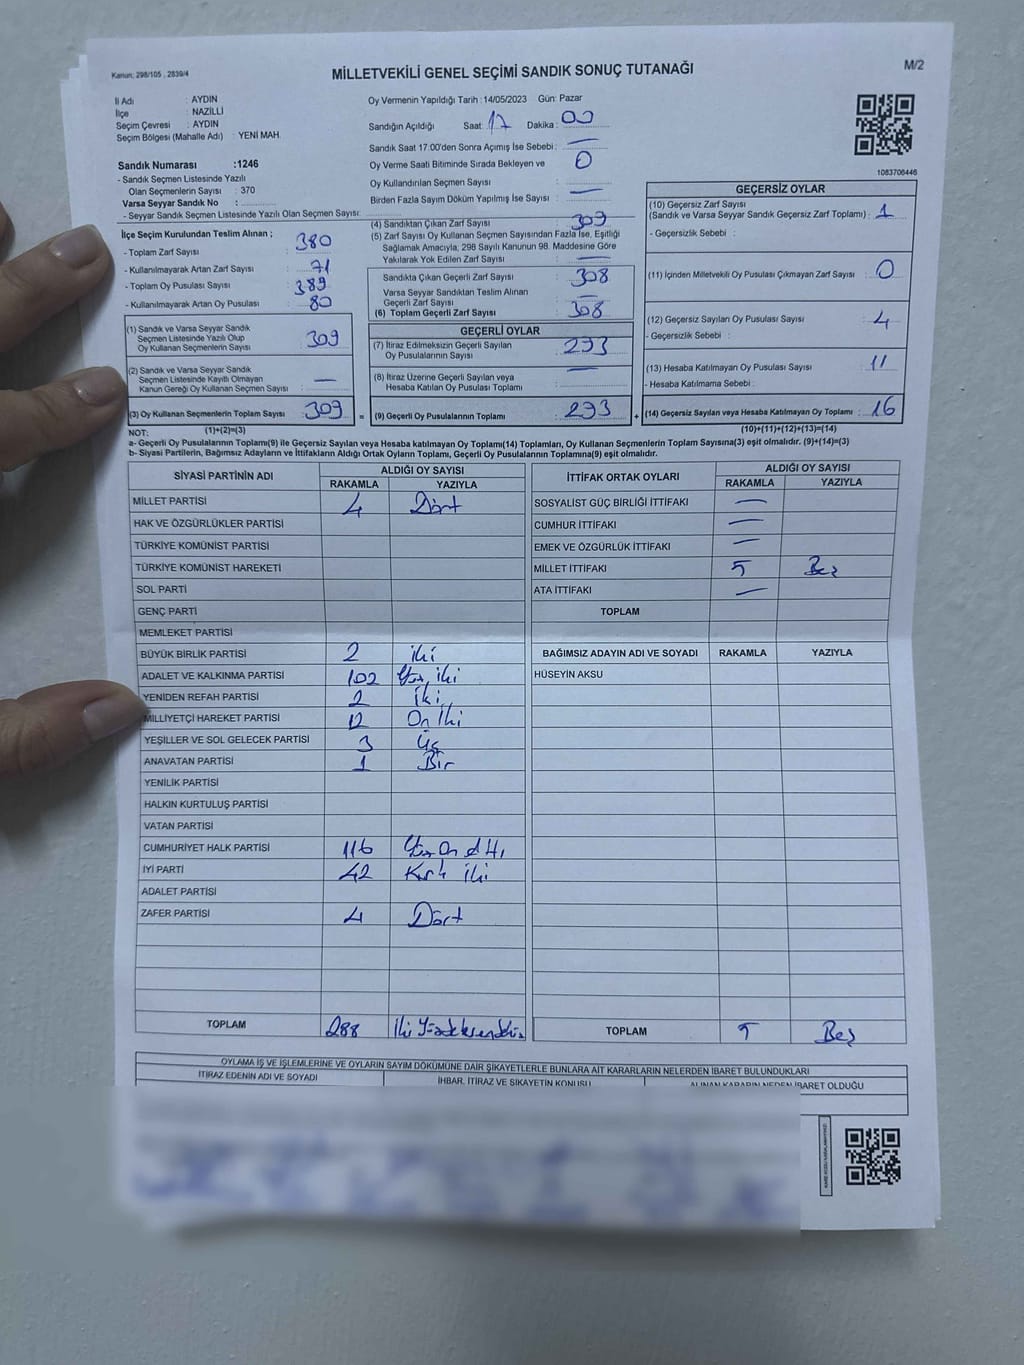 Kanun; 298/105 , 2839/4
MİLLETVEKİLİ GENEL SEÇİMİ SANDIK SONUÇ TUTANAĞI
M/2
İl Adı : AYDIN
İlçe : NAZİLLİ
Seçim Çevresi : AYDIN
Seçim Bölgesi (Mahalle Adı) : YENİ MAH.
Sandık Numarası :1246
- Sandık Seçmen Listesinde Yazılı
Olan Seçmenlerin Sayısı : 370
Varsa Seyyar Sandık No :
- Seyyar Sandık Seçmen Listesinde Yazılı Olan Seçmen Sayısı:
Oy Vermenin Yapıldığı Tarih :14/05/2023 Gün: Pazar
Sandığın Açıldığı Saat: 17 Dakika : 00
Sandık Saat 17:00'den Sonra Açımış İse Sebebi : —
Oy Verme Saati Bitiminde Sırada Bekleyen ve 0
Oy Kullandırılan Seçmen Sayısı :
Birden Fazla Sayım Döküm Yapılmış İse Sayısı : —
1083706446
İlçe Seçim Kurulundan Teslim Alınan ;
- Toplam Zarf Sayısı : 380
- Kullanılmayarak Artan Zarf Sayısı : 71
- Toplam Oy Pusulası Sayısı : 389
- Kullanılmayarak Artan Oy Pusulası : 80
(1) Sandık ve Varsa Seyyar Sandık
Seçmen Listesinde Yazılı Olup
Oy Kullanan Seçmenlerin Sayısı : 309
(2) Sandık ve Varsa Seyyar Sandık
Seçmen Listesinde Kayıtlı Olmayan
Kanun Gereği Oy Kullanan Seçmen Sayısı : —
(3) Oy Kullanan Seçmenlerin Toplam Sayısı : 309 =
(4) Sandıktan Çıkan Zarf Sayısı : 309
(5) Zarf Sayısı Oy Kullanan Seçmen Sayısından Fazla İse, Eşitliği
Sağlamak Amacıyla, 298 Sayılı Kanunun 98. Maddesine Göre
Yakılarak Yok Edilen Zarf Sayısı : —
Sandıkta Çıkan Geçerli Zarf Sayısı : 308
Varsa Seyyar Sandıktan Teslim Alınan
Geçerli Zarf Sayısı : —
(6) Toplam Geçerli Zarf Sayısı : 308
GEÇERLİ OYLAR
(7) İtiraz Edilmeksizin Geçerli Sayılan
Oy Pusulalarının Sayısı : 293
(8) İtiraz Üzerine Geçerli Sayılan veya
Hesaba Katılan Oy Pusulası Toplamı : —
(9) Geçerli Oy Pusulalarının Toplamı : 293 +
GEÇERSİZ OYLAR
(10) Geçersiz Zarf Sayısı
(Sandık ve Varsa Seyyar Sandık Geçersiz Zarf Toplamı) : 1
- Geçersizlik Sebebi :
(11) İçinden Milletvekili Oy Pusulası Çıkmayan Zarf Sayısı : 0
(12) Geçersiz Sayılan Oy Pusulası Sayısı : 4
- Geçersizlik Sebebi :
(13) Hesaba Katılmayan Oy Pusulası Sayısı : 11
- Hesaba Katılmama Sebebi :
(14) Geçersiz Sayılan veya Hesaba Katılmayan Oy Toplamı : 16
NOT: (1)+(2)=(3) (10)+(11)+(12)+(13)=(14)
a- Geçerli Oy Pusulalarının Toplamı(9) ile Geçersiz Sayılan veya Hesaba katılmayan Oy Toplamı(14) Toplamları, Oy Kullanan Seçmenlerin Toplam Sayısına(3) eşit olmalıdır. (9)+(14)=(3)
b- Siyasi Partilerin, Bağımsız Adayların ve İttifakların Aldığı Ortak Oyların Toplamı, Geçerli Oy Pusulalarının Toplamına(9) eşit olmalıdır.
SİYASİ PARTİNİN ADI ALDIĞI OY SAYISI
RAKAMLA YAZIYLA
MİLLET PARTİSİ 4 Dört
HAK VE ÖZGÜRLÜKLER PARTİSİ
TÜRKİYE KOMÜNİST PARTİSİ
TÜRKİYE KOMÜNİST HAREKETİ
SOL PARTİ
GENÇ PARTİ
MEMLEKET PARTİSİ
BÜYÜK BİRLİK PARTİSİ 2 iki
ADALET VE KALKINMA PARTİSİ 102 Yüz iki
YENİDEN REFAH PARTİSİ 2 iki
MİLLİYETÇİ HAREKET PARTİSİ 12 On iki
YEŞİLLER VE SOL GELECEK PARTİSİ 3 Üç
ANAVATAN PARTİSİ 1 Bir
YENİLİK PARTİSİ
HALKIN KURTULUŞ PARTİSİ
VATAN PARTİSİ
CUMHURİYET HALK PARTİSİ 116 Yüz On Altı
İYİ PARTİ 42 Kırk iki
ADALET PARTİSİ
ZAFER PARTİSİ 4 Dört
TOPLAM 288 İki Yüzseksensekiz
İTTİFAK ORTAK OYLARI ALDIĞI OY SAYISI
RAKAMLA YAZIYLA
SOSYALİST GÜÇ BİRLİĞİ İTTİFAKI —
CUMHUR İTTİFAKI —
EMEK VE ÖZGÜRLÜK İTTİFAKI —
MİLLET İTTİFAKI 5 Beş
ATA İTTİFAKI —
TOPLAM
BAĞIMSIZ ADAYIN ADI VE SOYADI RAKAMLA YAZIYLA
HÜSEYİN AKSU
TOPLAM 5 Beş
OYLAMA İŞ VE İŞLEMLERİNE VE OYLARIN SAYIM DÖKÜMÜNE DAİR ŞİKAYETLERLE BUNLARA AİT KARARLARIN NELERDEN İBARET BULUNDUKLARI
İTİRAZ EDENİN ADI VE SOYADI İHBAR, İTİRAZ VE ŞİKAYETİN KONUSU ALINAN KARARIN NEDEN İBARET OLDUĞU